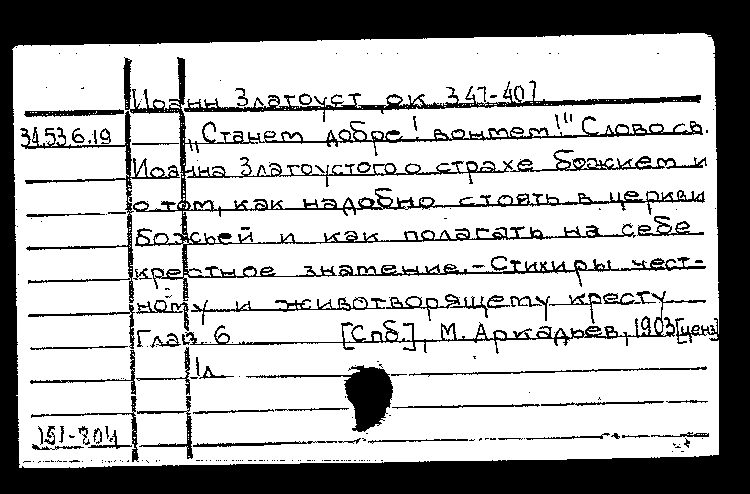 Иоанн Златоуст ок 347-407
34.536.19 „Станем добре! вонмем!" Слово св.
Иоанна Златоустого о страхе божием и
о том, как надобно стоять в церкви
божьей и как полагать на себе
крестное знамение.-Стихиры чест-
ному и животворящему кресту
Глав. 6 [Спб.], М. Аркадьев, 1903[ценз]
1л
151-804